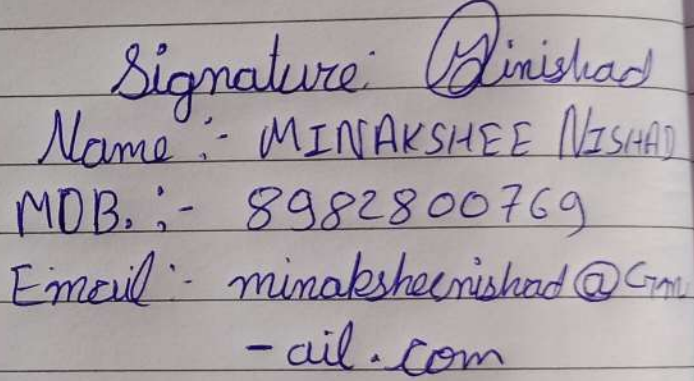 Signature: Minishad
Name :- MINAKSHEE NISHAD
MOB. :- 8982800769
Email :- minaksheenishad@Gm
-ail.com